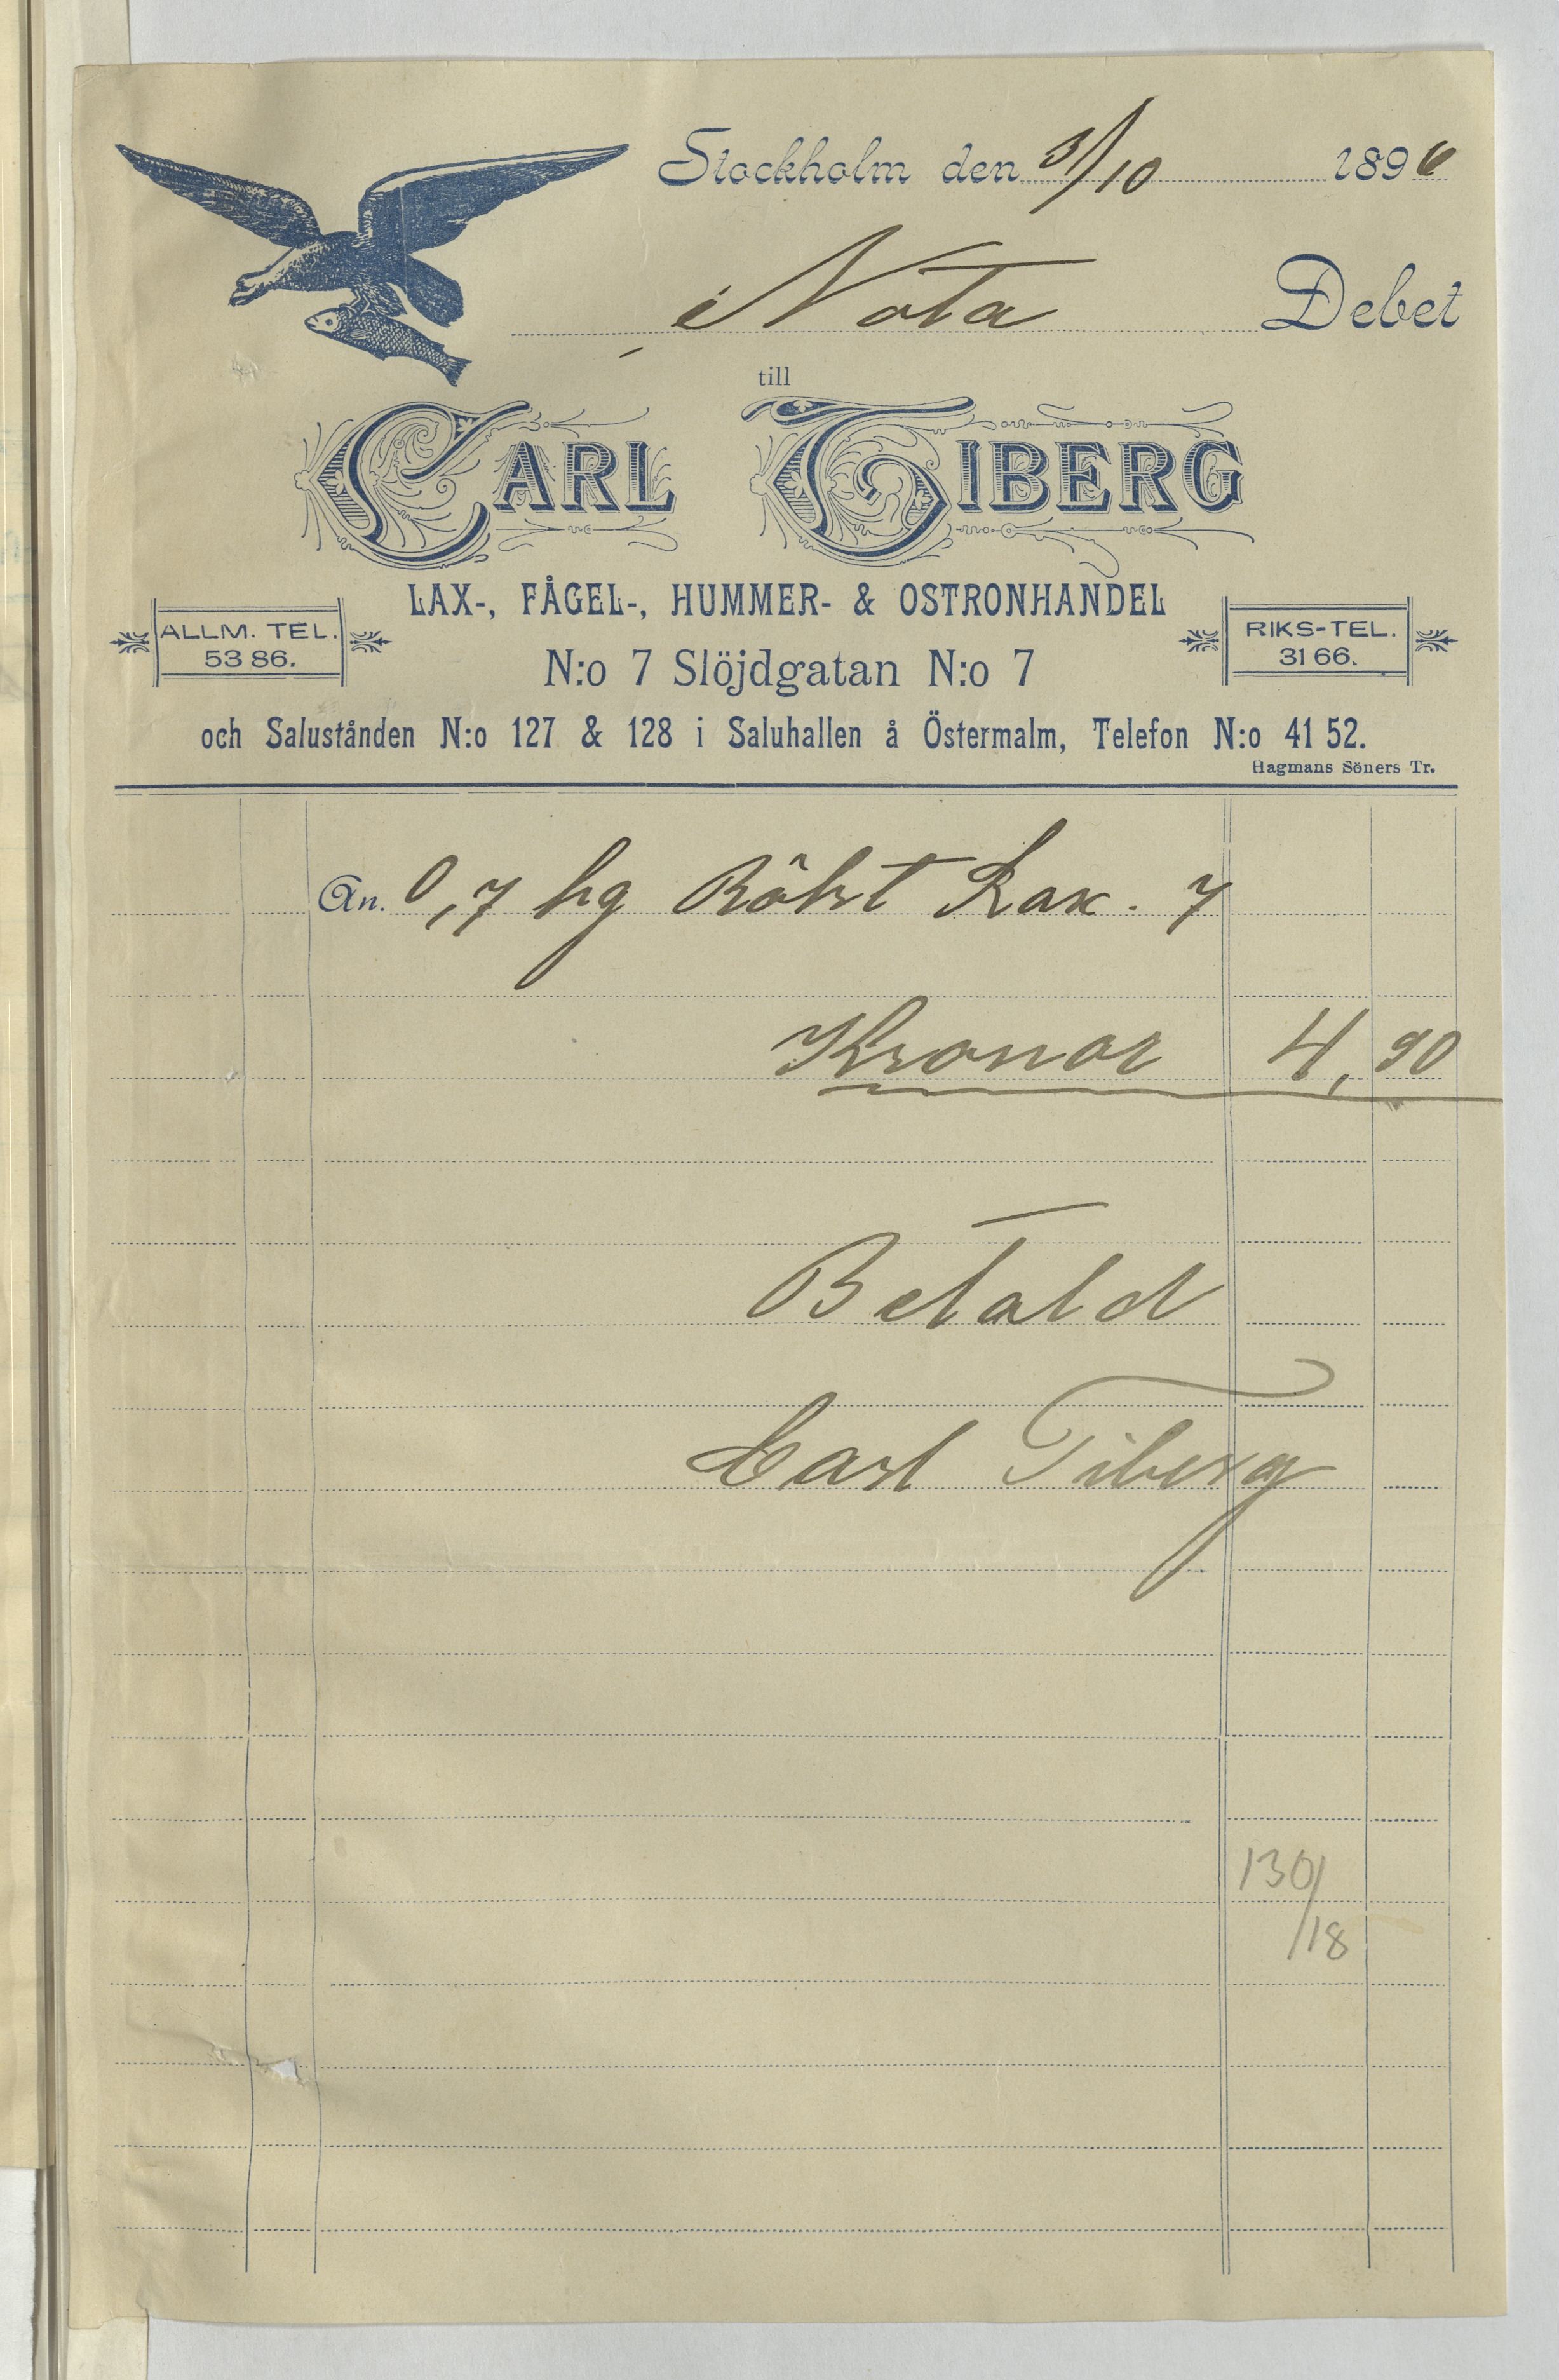 Stockholm den 3/10 1896
Nota Debet
till
CARL TIBERG
LAX-, FÅGEL-, HUMMER- & OSTRONHANDEL
ALLM. TEL.
53 86.
RIKS-TEL.
31 66.
N:o 7 Slöjdgatan N:o 7
och Salustånden N:o 127 & 128 i Saluhallen å Östermalm, Telefon N:o 41 52.
Hagmans Söners Tr.
An. 0,7 kg Rökt Lax. 7
Kronor 4,90
Betald
Carl Tiberg
130/
/18